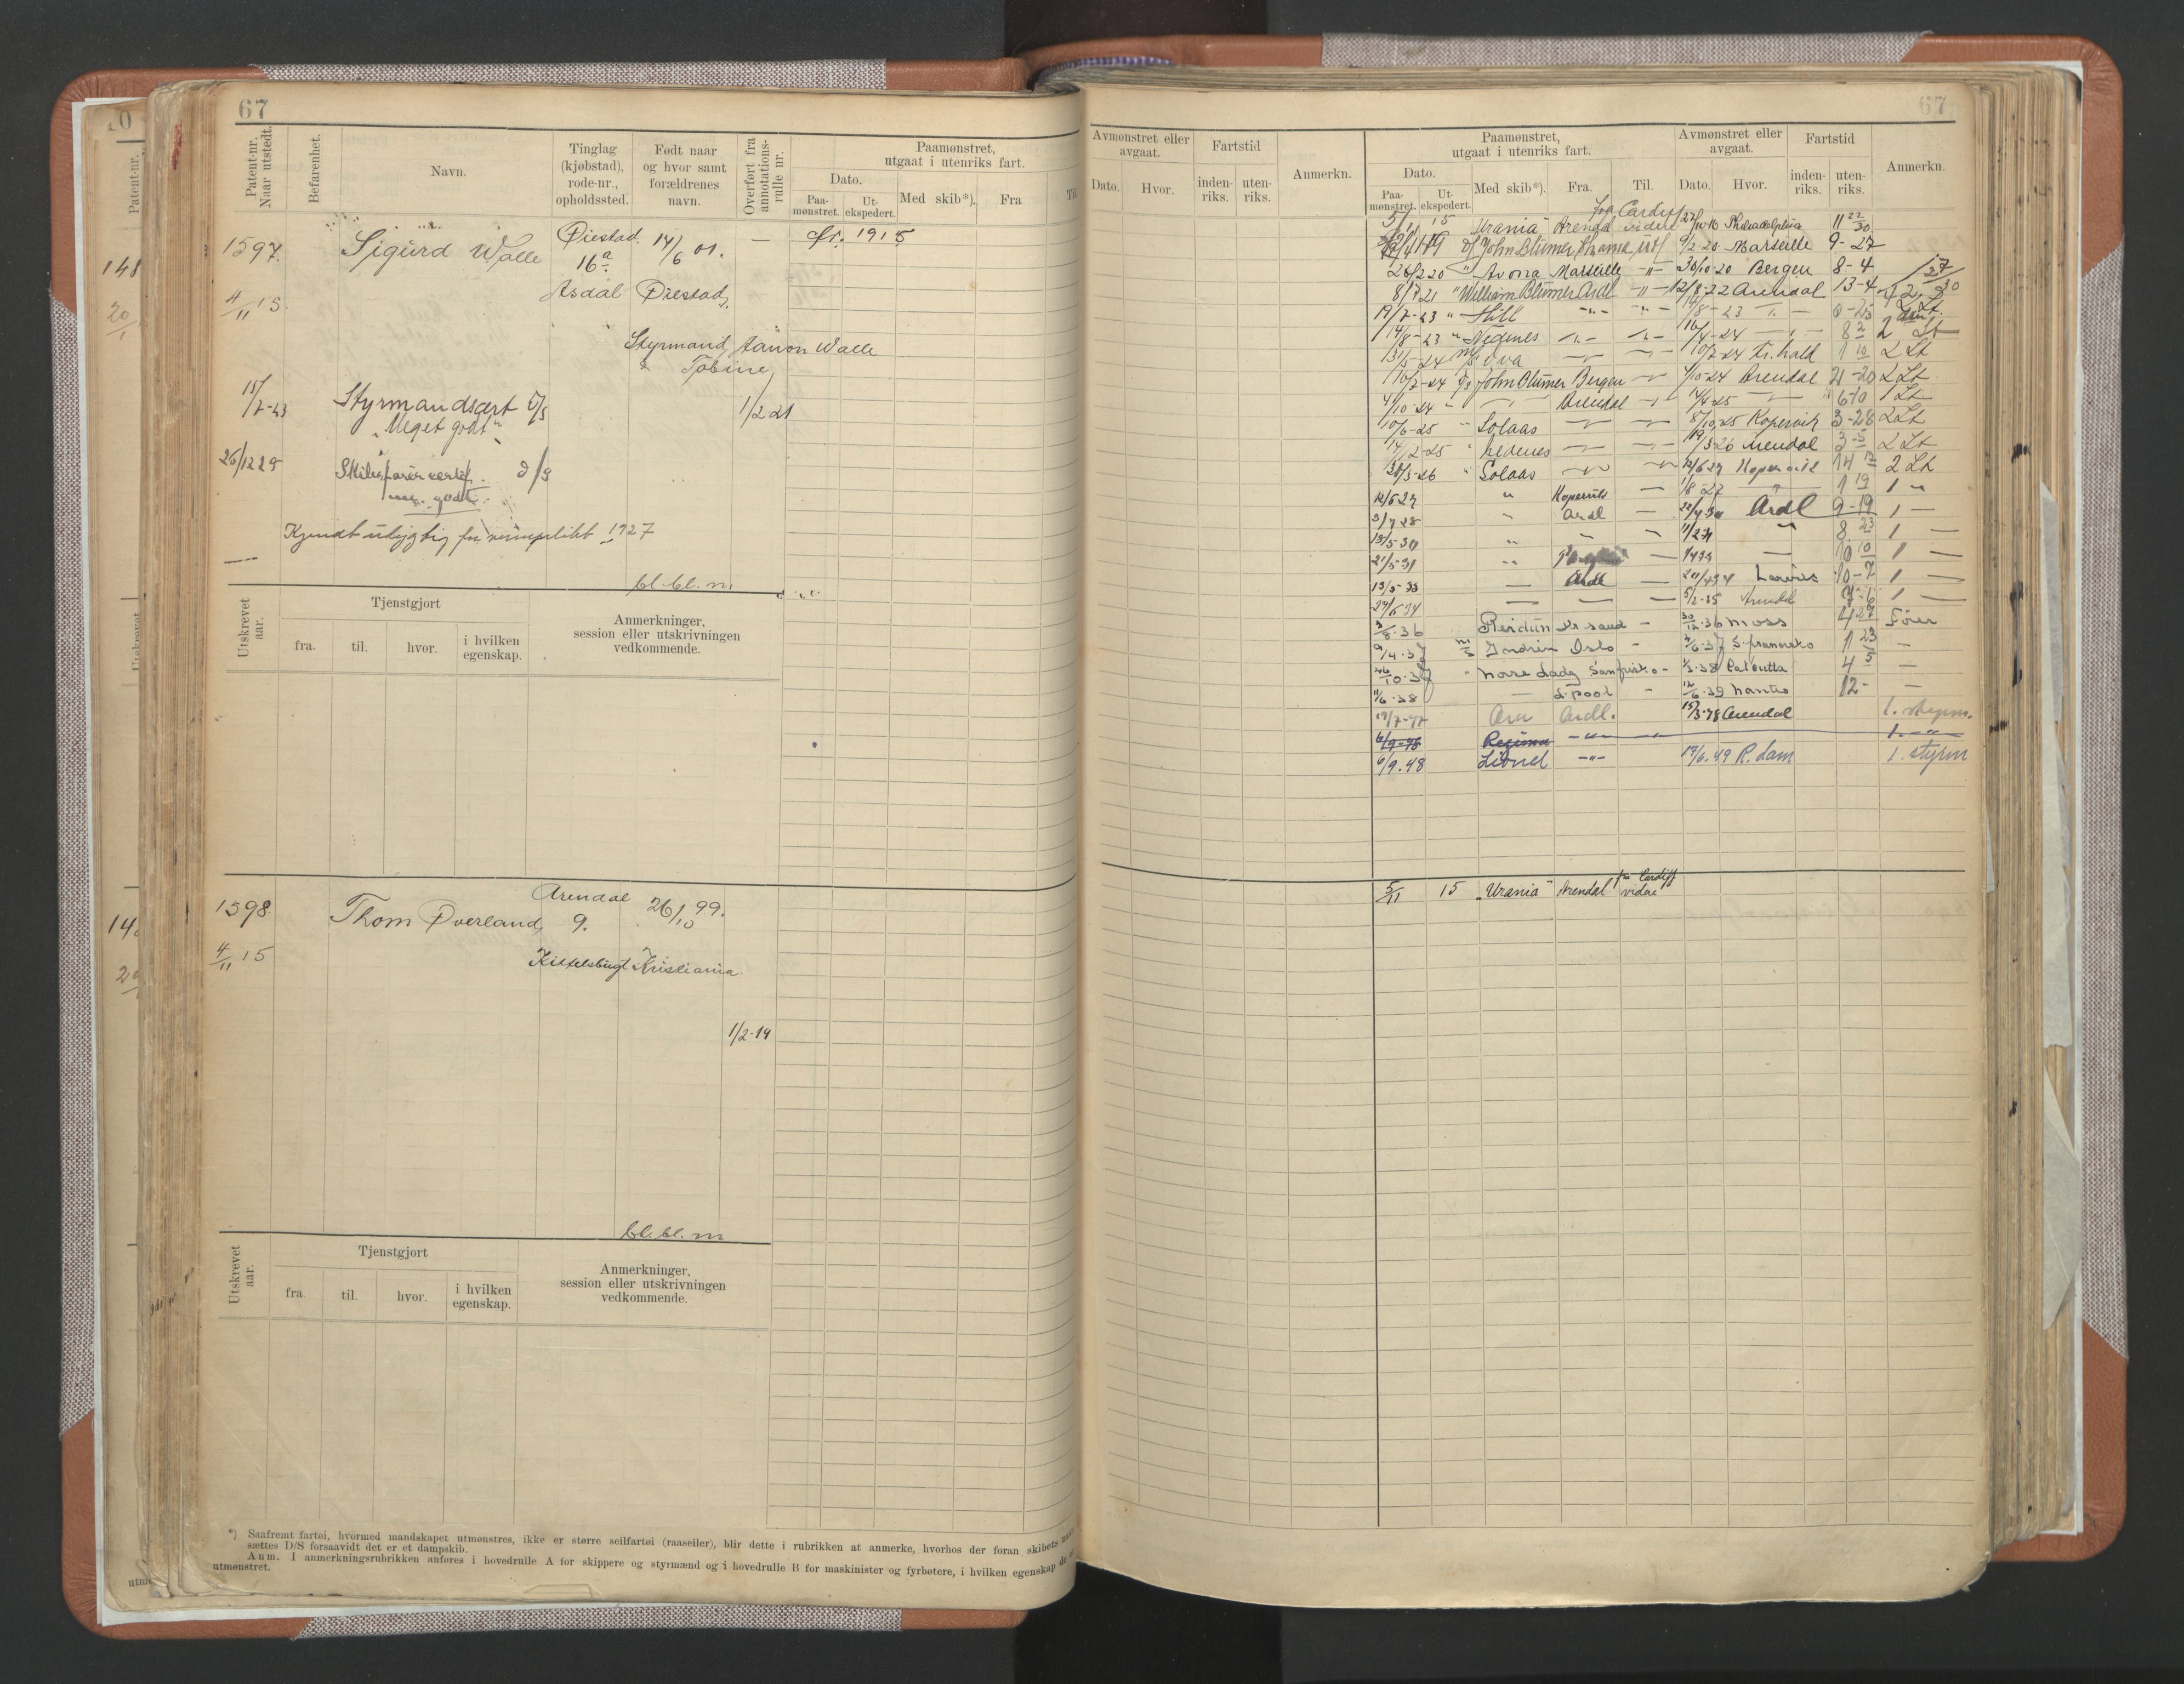 67
Patent-nr. Naar utstedt.
Befarenhet.
Navn.
Tinglag (kjøbstad), rode-nr., opholdssted.
Født naar og hvor samt forældrenes navn.
Overført fra annotations-rulle nr.
Paamønstret, utgaat i utenriks fart.
Dato.
Paa-mønstret.
Ut-ekspedert.
Med skib*).
Fra
Til
1597. Sigurd Walle Øiestad 16a 14/6 01. — fr. 1915
4/11 15. Asdal Øiestad,
Styrmand, Aanon Walle
& Tobine,
15/7-23 Styrmandscert D/S 1/2 21
"Meget godt"
26/12 29 Skibsførercertf. d/s
meg. godt.
Kjendt udygtig for verneplikt 1927
bl. bl. m
Utskrevet aar.
Tjenstgjort
fra.
til.
hvor.
i hvilken egenskap.
Anmerkninger, session eller utskrivningen vedkommende.
1598 Thom Øverland, Arendal 9. 26/10 99.
4/11 15 Kittelsbugt Kristiania
1/2-19
bl. bl. m
Utskrevet aar.
Tjenstgjort
fra.
til.
hvor.
i hvilken egenskap.
Anmerkninger, session eller utskrivningen vedkommende.
*) Saafremt fartøi, hvormed mandskapet utmønstres, ikke er større seilfartøi (raaseiler), blir dette i rubrikken at anmerke, hvorhos der foran skibets navn
sættes D/S forsaavidt det er et dampskib.
Anm. I anmerkningsrubrikken anføres i hovedrulle A for skippere og styrmænd og i hovedrulle B for maskinister og fyrbøtere, i hvilken egenskap de er
utmønstret.
67
Avmønstret eller avgaat.
Dato.
Hvor.
Fartstid
inden-riks.
uten-riks.
Anmerkn.
Paamønstret, utgaat i utenriks fart.
Dato.
Paa-mønstret.
Ut-ekspedert.
Med skib*).
Fra.
Til.
Avmønstret eller avgaat.
Dato.
Hvor.
Fartstid
inden-riks.
uten-riks.
Anmerkn.
5/11 15 "Urania" Arendal fra Cardiff videre 27/10-16 Philadelphia 11 22/30
11-19 D/S John Blumer utf 9/2 20 Marseille 9-27
26/2 20 " Avona Marseille -"- 30/10-20 Bergen 8-4
8/7 21 "William Blumer Ardl -"- 12/8-22 Arendal 13-4
19/7-23 " Hill -"- -"- 11/8-23 -"- 0-23 2 St.
14/8-23 " Nedenes -"- -"- 16/4-24 -"- 8 2 2 St
13/5-24 M/S Eva -"- -"- 10/7-24 Fr.hald 1 10 2 St
16/7-24 D/S John Blumer Bergen -"- 4/10-24 Arendal 2-20 2 St
4/10-24 " -"- Arendal -"- 14/4-25 -"- 6-10 1 St
10/6-25 " Solaas -"- -"- 8/10-25 Kopervik 3-28 2 St
14/12-25 " Nedenes -"- -"- 19/3-26 Arendal 3-5 2 St
30/3-26 " Solaas -"- -"- 12/6 27 Kopervik 14 12 2 St
12/6 27 " Kopervik — 1/8-27 " 1 19 1 "
3/7 28 " Ardl — 22/4 30 Ardl 9-19 1 —
18/5-30 " " " 11/2 31 " 8 23 1 —
21/5-31 " — — 10 10 1 —
13/5-33 — Ardl — 20/4 34 Larvik 10-7 1 —
29/6 34 — — — 5/2-35 Arendal 7-6 1 —
3/8-36 Reidun Kr.sand - 30/12-36 Moss 4 27 Fører
9/4-37 m/s Indrin Oslo - 2/6-37 S.fransisko 1 23 —
26/10-37 " Norse Lady Sanfrisko - 1/3-38 Calcutta 4 5 —
11/6-38 — L.pool - 12/6-39 Nantes 12- —
19/7-47 Ara Ardl. 15/3-48 Arendal 1. styrm.
6/9-48 Regima -"- " 1. "
6/9.48 Lionel -"- 19/6.49 R.dam 1. styrm
5/11 15 "Urania" Arendal fra Cardiff videre